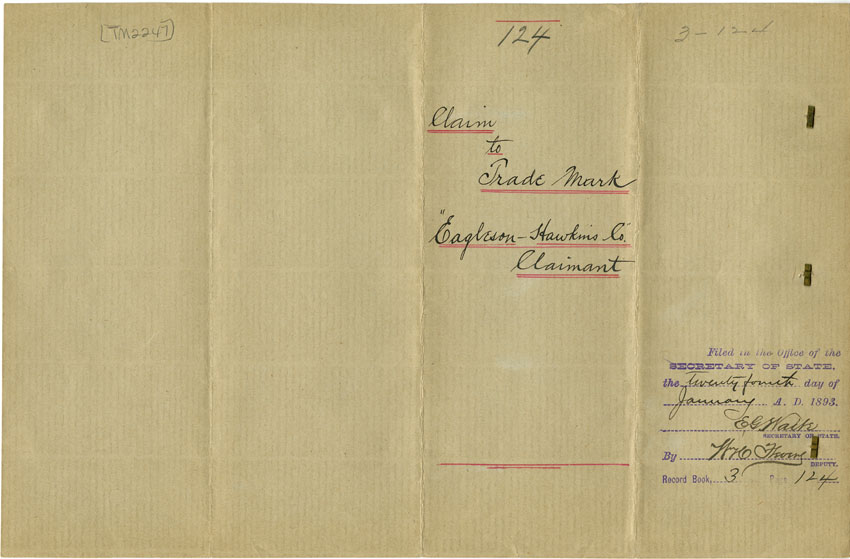 [TM2247]
124
3-124
Claim
to
Trade Mark
"Eagleson-Hawkins Co."
Claimant
Filed in the Office of the
SECRETARY OF STATE,
the Twenty fourth day of
January A. D. 1893.
E G Waite
SECRETARY OF STATE.
By W H
DEPUTY.
Record Book, 3 Page 124